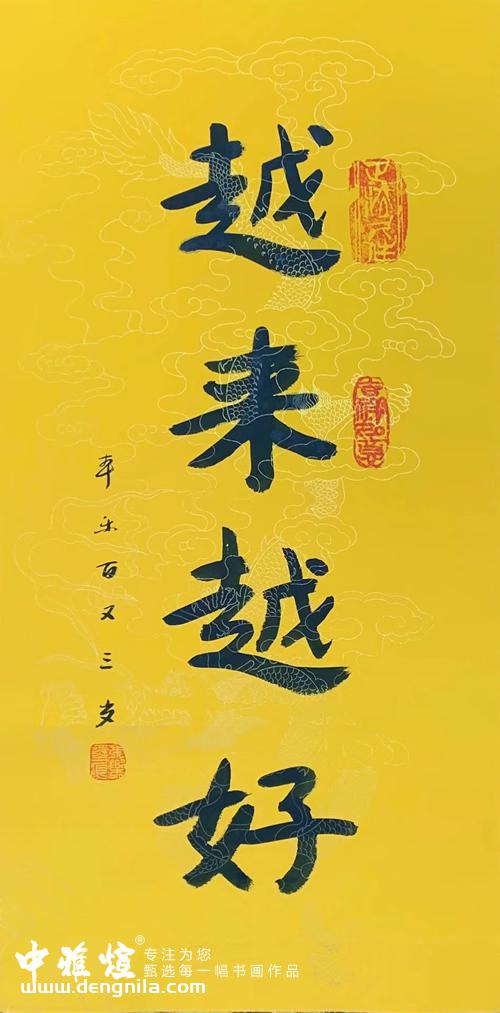 越来越好
吉祥如意
乐百又三岁
中雅煊®
专注为您
甄选每一幅书画作品
www.dengnila.com